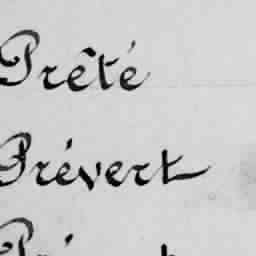 Prêté
Prévert